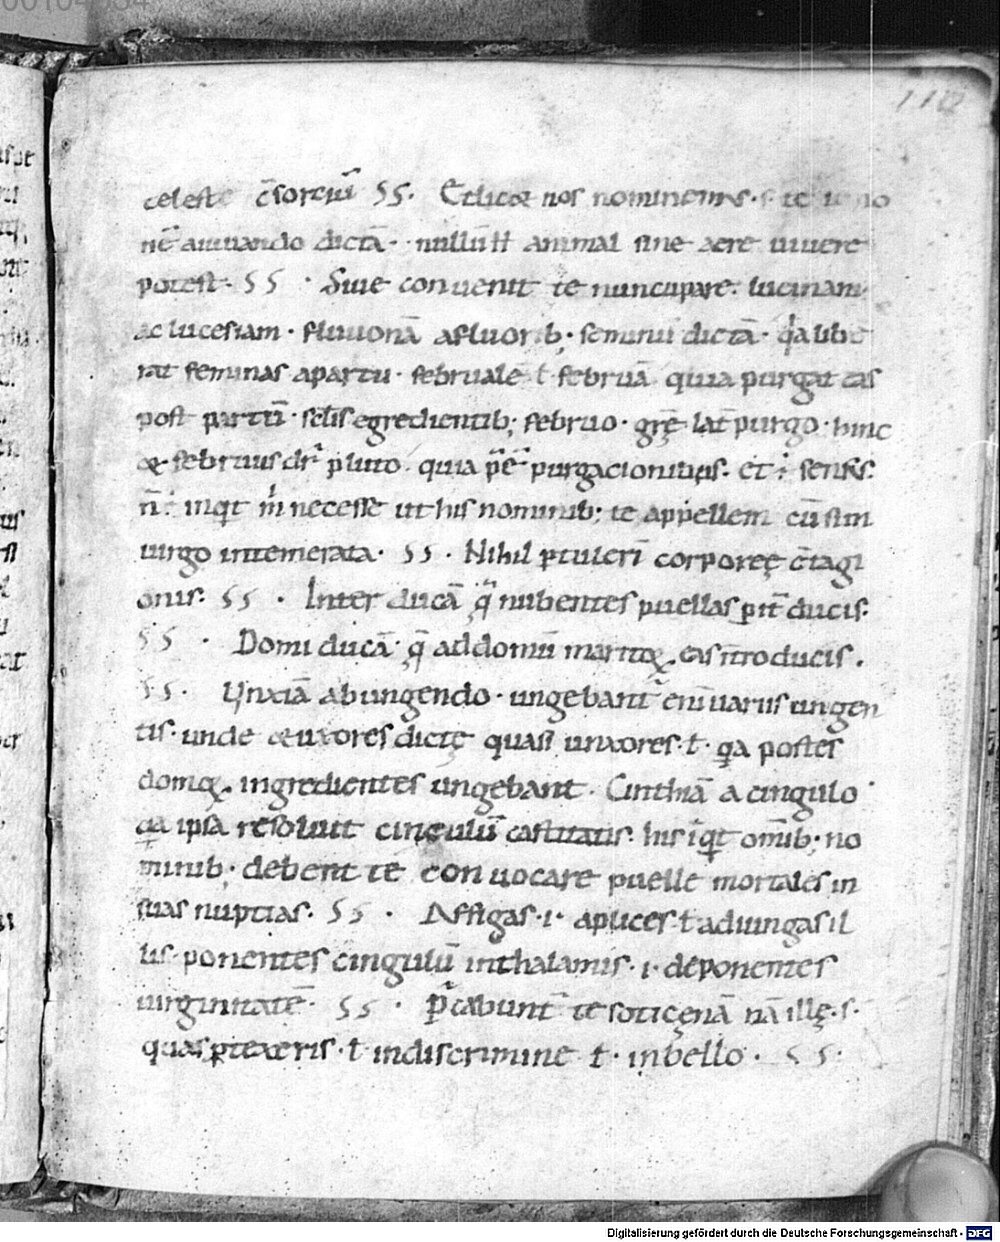 00104034
110
celeste c̄sorciū SS. Et licet nos nominemus · s· te
nē aiuuando dictā · nullū .n. animal sine aere uiuere
potest. SS · Siue conuenit te nuncupare. lucinam
ac lucesiam · fluuonā a fluorib; seminū dictā · q̄a libe
rat feminas apartu · februalē ł februā quia purgat eas
post partū sc̄dis egredientib; februo · grę̄ lat̄ purgo · hinc
& februus dr̄ pluto quia p̄ē purgacionibus. et ·i· sensus.
n̄ ·i· inqt m̄ necesse ut his nominib; te appellem cū sim
uirgo intemerata. SS · Nihil ptulerī corporeę c̄tagi
onis. SS · Inter ducā q̄ nubentes puellas pit̄ ducis.
SS · Domi ducā q̄ ad domū maritoꝝ eas īt̄roducis.
SS. Unxiā ab ungendo · ungebant̄ eni uariis ungen
tis · unde & uxores dictę quasi unxores · ł · q̄a postes
domoꝝ ingredientes ungebant. Cinthiā a cingulo
q̄a ipsa resoluit cingulū castitatis. his iq̄t om̄ib; no
minib; debent te conuocare puelle mortales in
suas nuptias. SS · Affigas ·i· aplices ł adiungas il
lis · ponentes cingulū inthalamis ·i· deponentes
uirginitatē. SS · P̄cabunt̄ te soticenā nā illę ·s·
quas ptexeris · ł indiscrimine ł · inbello. SS.
Digitalisierung gefördert durch die Deutsche Forschungsgemeinschaft - DFG